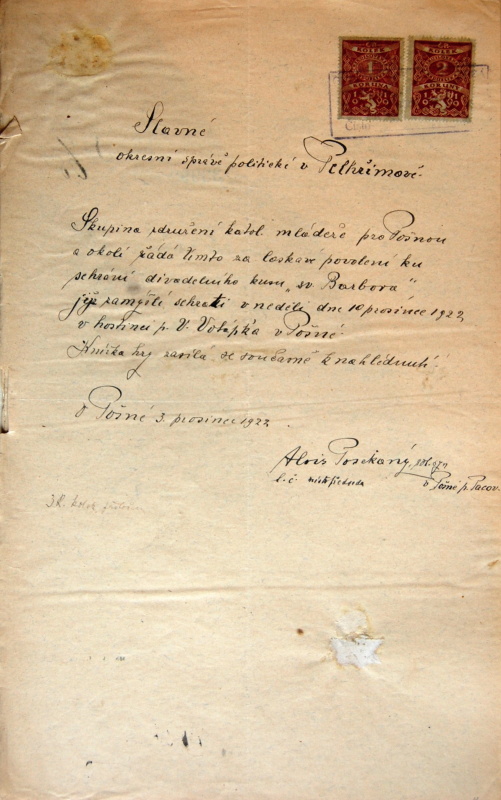 KOLEK
1
KORUNA
KOLEK
2
KORUNY
Číslo
Slavné
okresní správě politické v Pelhřimově.
Skupina sdružení katol. mládeže pro Pošnou
a okolí žádá tímto za laskavé povolení ku
sehrání divadelního kusu „sv Barbora"
jijž zamýšlí sehrati v neděli dne 10 prosince 1922,
v hostinci p. V. Votápka v Pošné.
Knížka hry zasílá se současně k nahlédnutí.
V Pošné 3. prosince 1922
Alois Posekaný,
t.č. místopředseda
v Pošné p. Pacov.
3 K. kolek